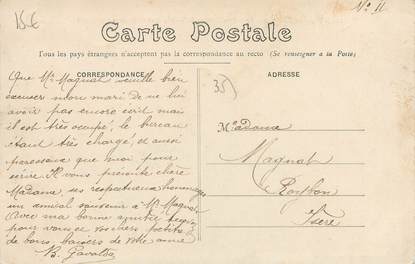 15€
N° 11
Carte Postale
Tous les pays étrangers n'acceptent pas la correspondance au recto (Se renseigner à la Poste)
CORRESPONDANCE
ADRESSE
35)
Que Mr Magnat veuille bien
excuser mon mari de ne lui
avoir pas encore écrit mais
il est très occupé, le bureau
étant très chargé, et aussi
paresseux que moi pour
écrire. Il vous présente chère
Madame, ses respectueux hommages
un amical souvenir à Mr Magnat
Avec ma bonne amitié
pour vous et vos chers petits
de bons baisers de votre amie
B.
Madame
Magnat
Roybon
Isère